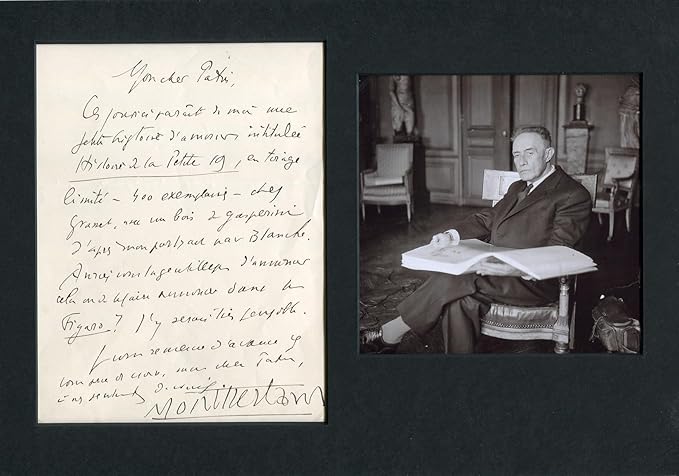 Mon cher
Ces jours-ci paraît de moi une
petite histoire d'amour, intitulée
Histoire de la Petite 19, en tirage
limité – 400 exemplaires – chez
Grasset, avec un bois de Gasperini
d'après mon portrait par Blanche.
Auriez-vous la gentillesse d'annoncer
cela ou de le faire annoncer dans le
Figaro ? J'y serais très sensible.
vous remercie d'avance et
vous prie de croire, mon cher
à mes sentiments
Montherlant